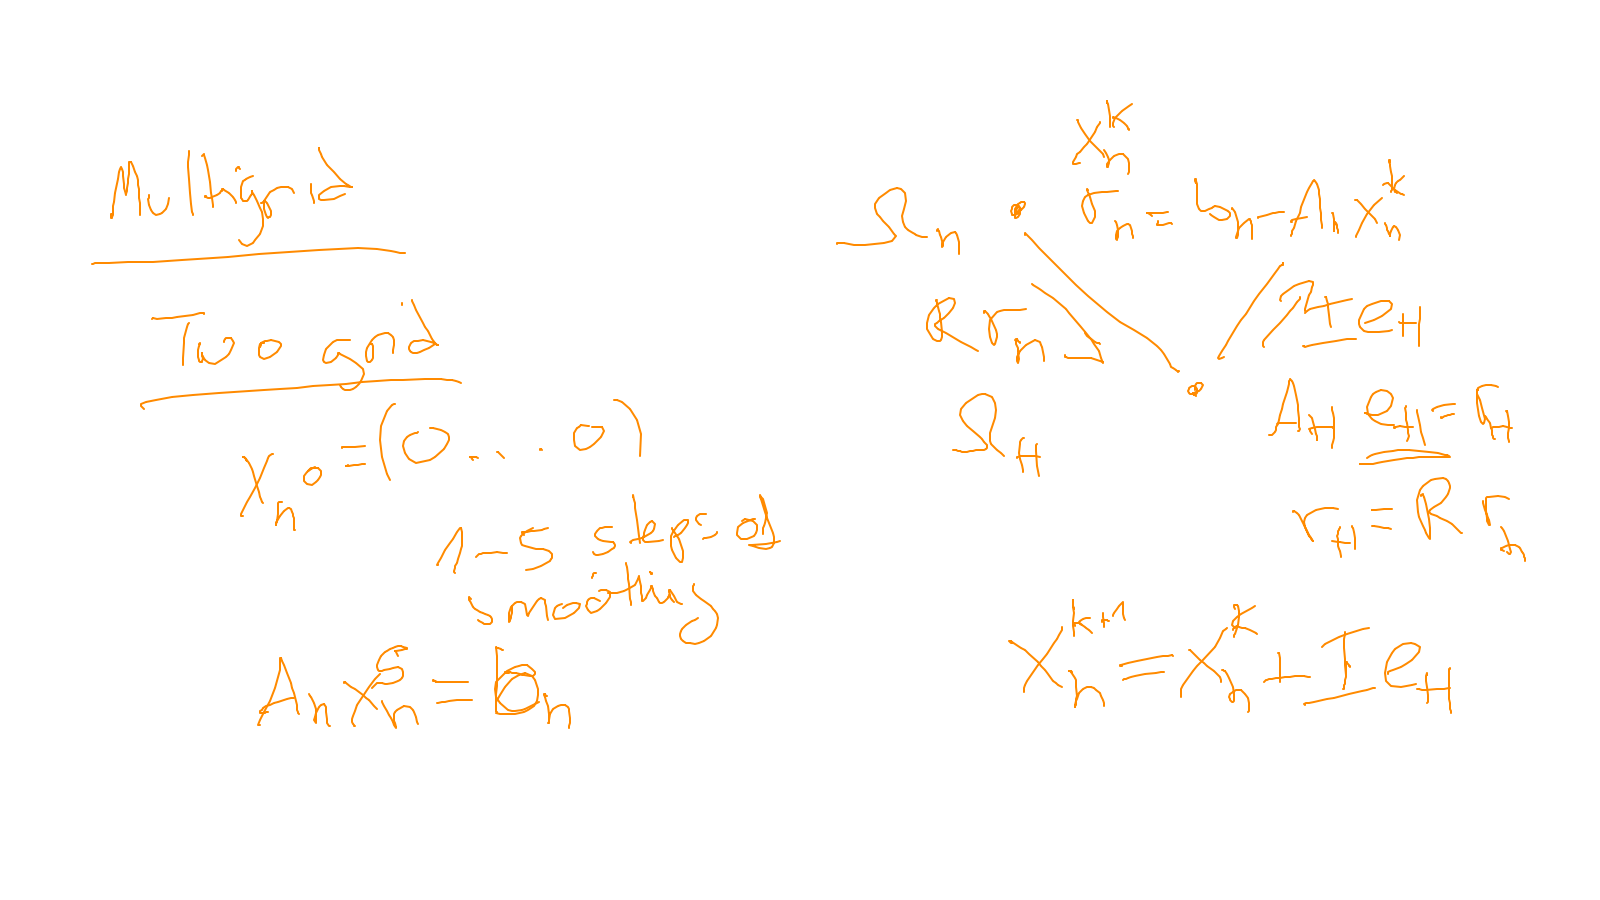 Multigrid
Two grid
x_h^0 = (0 ... 0)
1-5 steps of
smoothing
A_h x_h^5 = b_h
x_h^k
Ω_h r_h = b_h - A_h x_h^k
R r_h I e_H
Ω_H A_H e_H = r_H
r_H = R r_h
x_h^{k+1} = x_h^k + I e_H